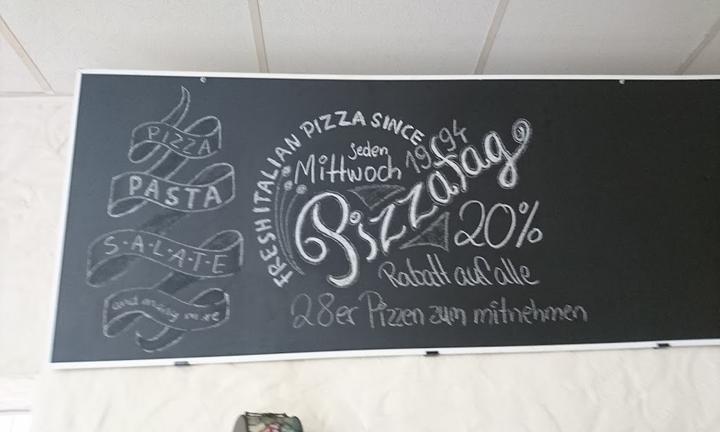 PIZZA
PASTA
S·A·L·A·T·E
and many more
FRESH ITALIAN PIZZA SINCE
1994
jeden
Mittwoch
Pizzatag
20%
Rabatt auf alle
28er Pizzen zum mitnehmen